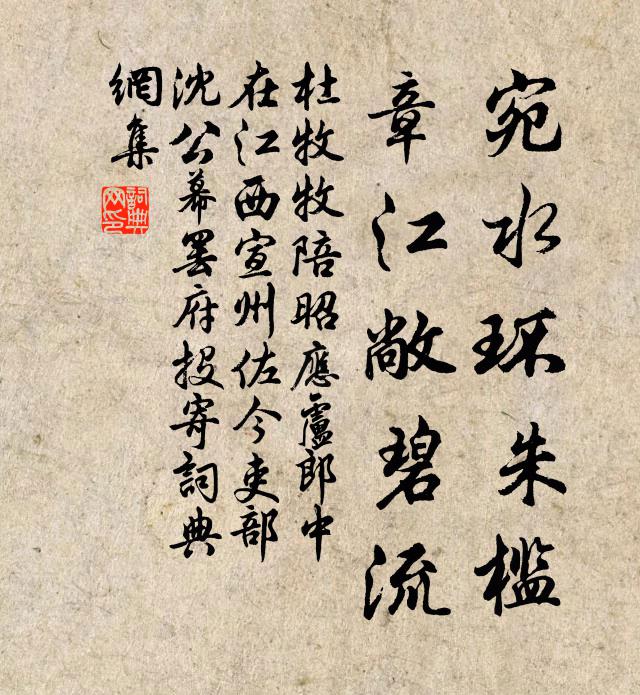 宛水环朱檻
章江敞碧流
杜牧牧陪昭應盧郎中
在江西宣州佐今吏部
沈公幕罷府投寄詞典
網集
詞典
网印